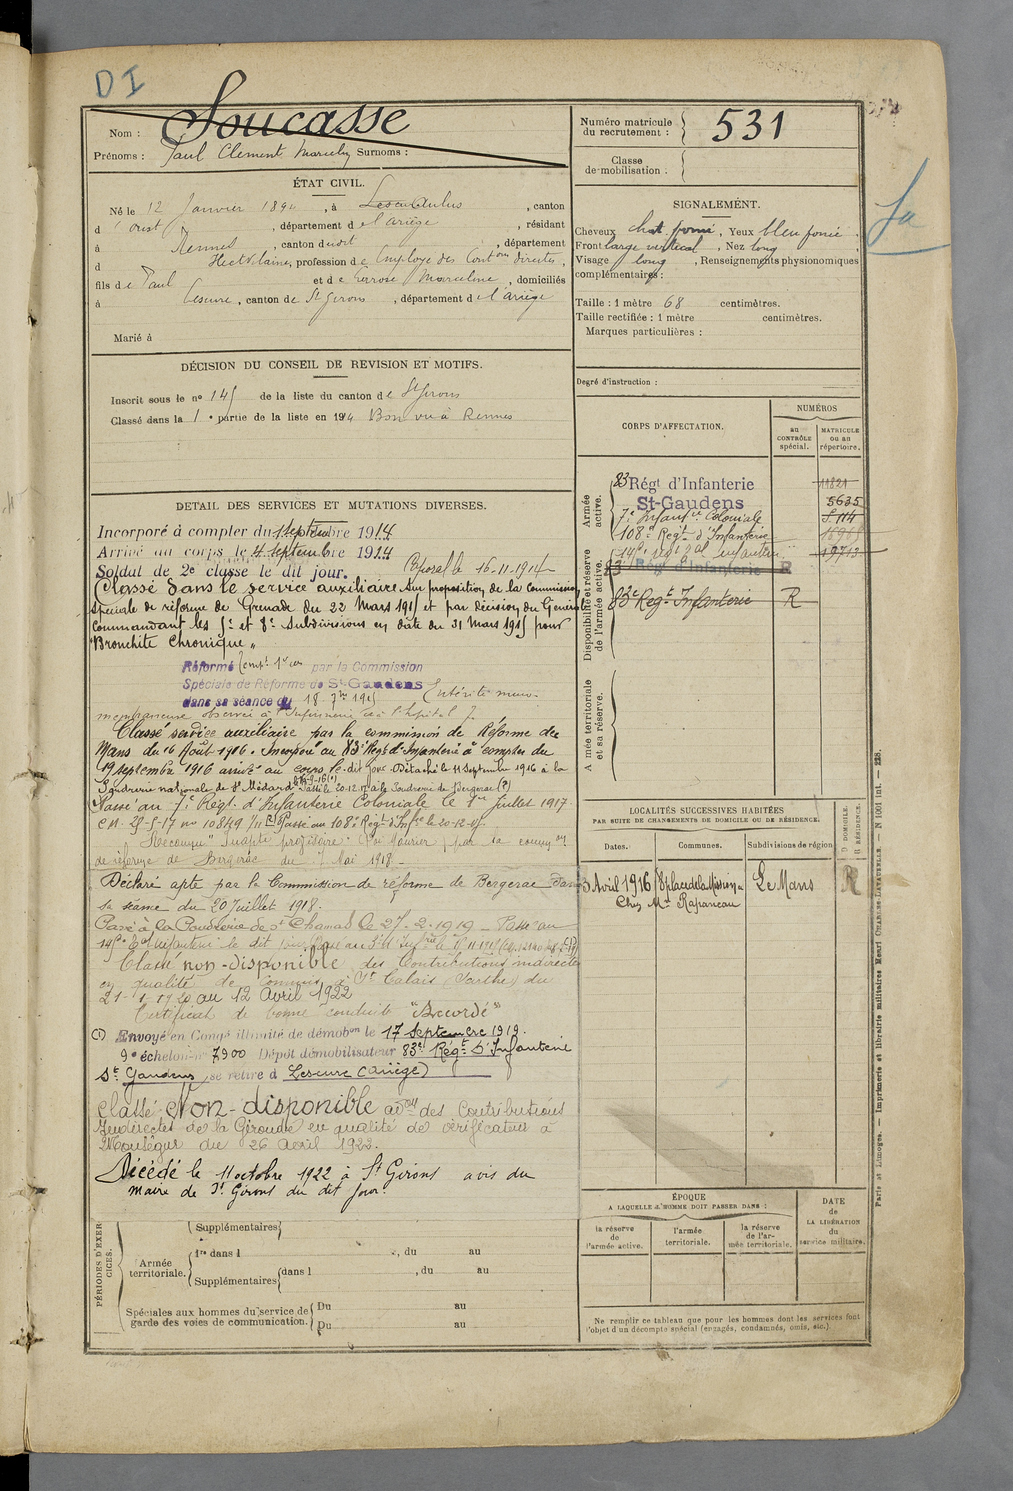 D I
Nom : Soucasse
Prénoms : Paul Clement Surnoms :
Numéro matricule du recrutement : 531
Classe de mobilisation :
ÉTAT CIVIL.
Né le 12 Janvier 1894, à , canton
d , département de l'ariège , résidant
à Rennes , canton dudit , département
d , profession de Employé des Contons directes,
fils de Paul et de Marceline , domiciliés
à Lescure, canton de St Girons , département de l'ariège
Marié à
SIGNALEMENT.
Cheveux chat foncé , Yeux bleu foncé .
Front large vertical , Nez long ,
Visage long , Renseignements physionomiques
complémentaires :
Taille : 1 mètre 68 centimètres.
Taille rectifiée : 1 mètre centimètres.
Marques particulières :
Degré d'instruction :
DÉCISION DU CONSEIL DE REVISION ET MOTIFS.
Inscrit sous le no 145 de la liste du canton de St Girons
Classé dans la 1e partie de la liste en 1914 Bon vu à Rennes
DETAIL DES SERVICES ET MUTATIONS DIVERSES.
Incorporé à compter du 1 septembre 1914
Arrivé au corps le 4 septembre 1914
Soldat de 2e classe le dit jour. le 16-11-1914
Classé dans le service auxiliaire sur proposition de la Commission
Spéciale de réforme de Grenade du 22 Mars 1915 et par décision du Général
Commandant les 5e et 8e Subdivisions en date du 31 Mars 1915 pour
"Bronchite chronique"
Réformé temp. par la Commission
Spéciale de Réforme de St-Gaudens
dans sa séance du 18-7bre 1915 Entérite muco-
membraneuse observée à l'Infirmerie l'hôpital
Classé service auxiliaire par la commission de Réforme du
Mans du 16 Août 1916. Incorporé au 83e Regt d'Infanterie à compter du
19 septembre 1916 arrivé au corps le dit jour. Détaché le 11 Septembre 1916 à la
Poudrerie nationale de St Médard Passé le 20-12-17 à la Poudrerie de Bergerac (?)
Passé au 7e Régt d'Infanterie Coloniale le 1er Juillet 1917
C.M. 25-5-17 no 10849 Passé au 108e Régt d'Infie le 20-12-17
Reconnu "Inapte provisoire" par la comm on
de réforme de Bergerac du 7 Mai 1918
Déclaré apte par la Commission de réforme de Bergerac dans
sa séance du 20 Juillet 1918.
Passé à la Poudrerie de St Chamas le 27-2-1919 - Passé au
145e d'infanterie le dit jour
Classé non-disponible des Contributions indirectes
en qualité de commis à St Calais (Sarthe) du
21-1-1920 au 12 Avril 1922
Certificat de bonne conduite "Accordé"
(1) Envoyé en Congé illimité de démobon le 17 Septembre 1919.
9e échelon no 7900 Dépôt démobilisateur 83e Régt d'Infanterie
St Gaudens, se retire à Lescure (Ariège)
Classé Non-disponible des Contributions
Indirectes de la Gironde en qualité de vérificateur à
Monségur du 26 Avril 1922.
Décédé le 11 octobre 1922 à St Girons avis du
Maire de St Girons du dit jour.
CORPS D'AFFECTATION.
NUMÉROS
au CONTRÔLE spécial.
MATRICULE ou au répertoire.
Armée active.
83 Régt d'Infanterie
St-Gaudens
7e Infantie Coloniale
108e Regt d'Infanterie
145e Regt d'Infanterie
11821
5635
Disponibilité et réserve de l'armée active.
83 Régt d'Infanterie R
83e Regt Infanterie R
Armée territoriale et sa réserve.
LOCALITÉS SUCCESSIVES HABITÉES
PAR SUITE DE CHANGEMENTS DE DOMICILE OU DE RÉSIDENCE.
Dates.
Communes.
Subdivisions de région
D DOMICILE.
R RÉSIDENCE.
3 Avril 1916 8 place de la Mission Le Mans R
Chez Me Raparceau
ÉPOQUE
A LAQUELLE L'HOMME DOIT PASSER DANS :
la réserve de l'armée active.
l'armée territoriale.
la réserve de l'armée territoriale.
DATE
de
LA LIBÉRATION
du
service militaire.
Ne remplir ce tableau que pour les hommes dont les services font
l'objet d'un décompte spécial (engagés, condamnés, omis, etc.).
PÉRIODES D'EXERCICES.
Supplémentaires
Armée territoriale.
1re dans l , du au
Supplémentaires dans l , du au
Spéciales aux hommes du service de
garde des voies de communication.
Du au
Du au
Paris et Limoges. — Imprimerie et librairie militaires Henri CHARLES-LAVAUZELLE. — N 1001 int. — 228.